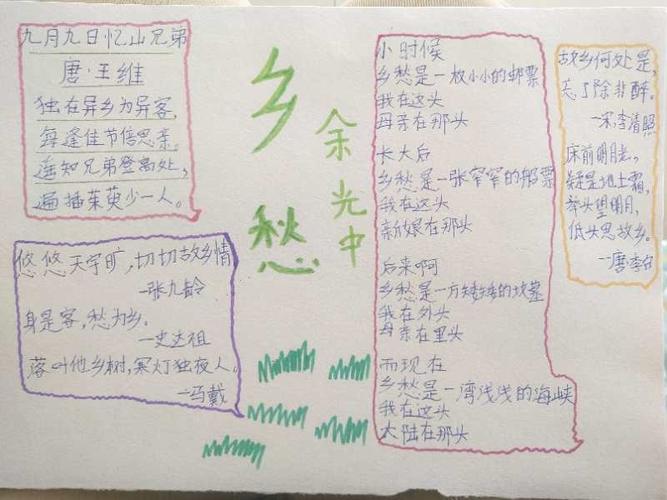 九月九日忆山兄弟
唐·王维
独在异乡为异客,
每逢佳节倍思亲。
遥知兄弟登高处,
遍插茱萸少一人。
悠悠天宇旷,切切故乡情
—张九龄
身是客,愁为乡。
—史达祖
落叶他乡树,寒灯独夜人。
—马戴
乡愁
余光中
小时候
乡愁是一枚小小的邮票
我在这头
母亲在那头
长大后
乡愁是一张窄窄的船票
我在这头
新娘在那头
后来啊
乡愁是一方矮矮的坟墓
我在外头
母亲在里头
而现在
乡愁是一湾浅浅的海峡
我在这头
大陆在那头
故乡何处是,
忘了除非醉。
—宋李清照
床前明月光,
疑是地上霜,
举头望明月,
低头思故乡。
—唐李白